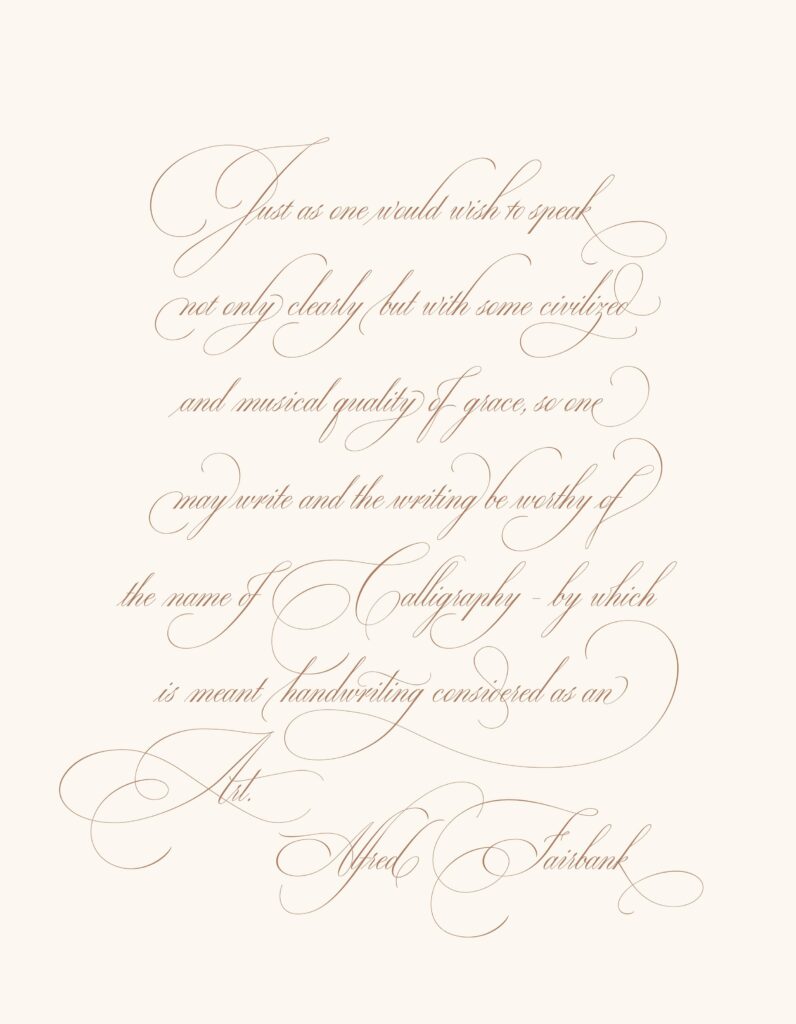 Just as one would wish to speak
not only clearly but with some civilized
and musical quality of grace, so one
may write and the writing be worthy of
the name of Calligraphy - by which
is meant handwriting considered as an
Art.
Alfred Fairbank